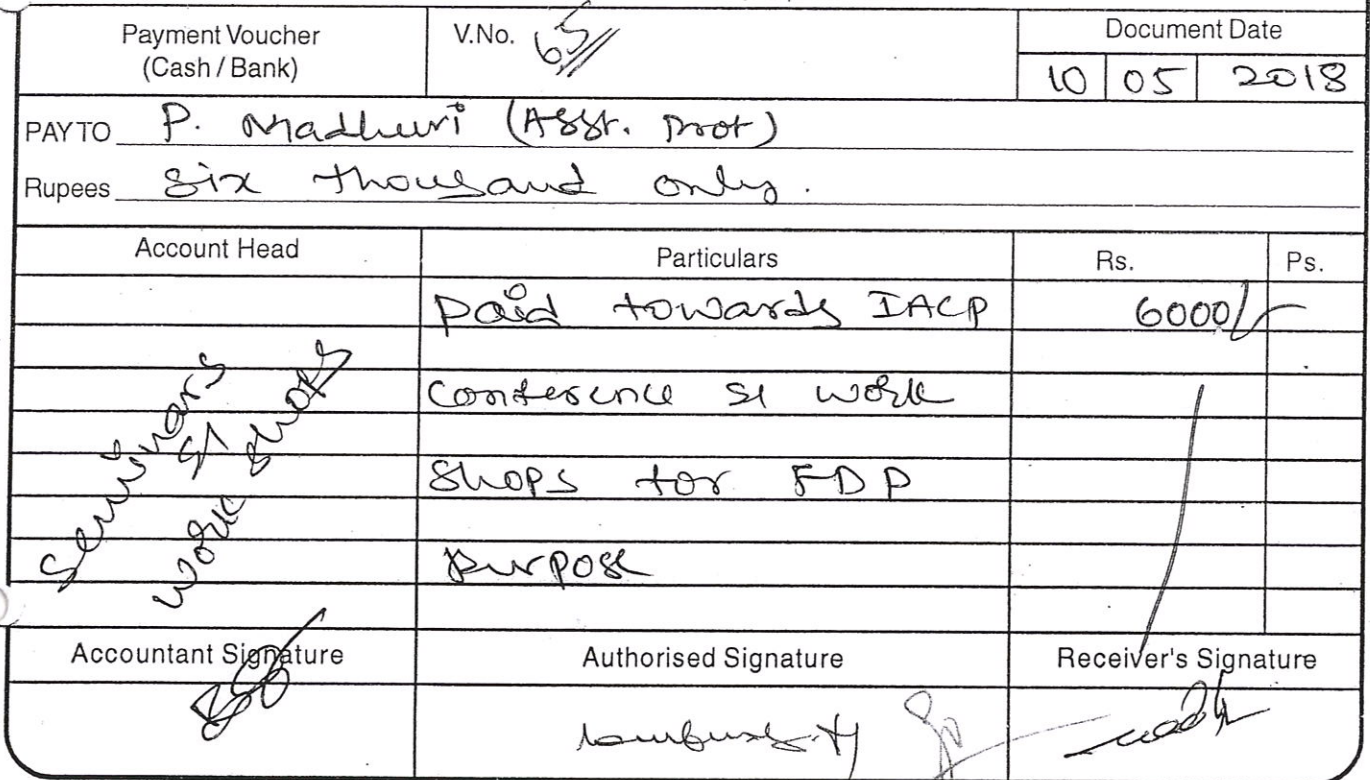 Payment Voucher
(Cash / Bank)
V.No. 65//
Document Date
10 05 2018
PAY TO P. Madhuri (Asst. Prof)
Rupees Six thousand only.
Account Head
Particulars
Rs.
Ps.
Seminars
&
work shops
paid towards IACP
6000/-
Conference & work
shops for FDP
purpose
Accountant Signature
Authorised Signature
Receiver's Signature